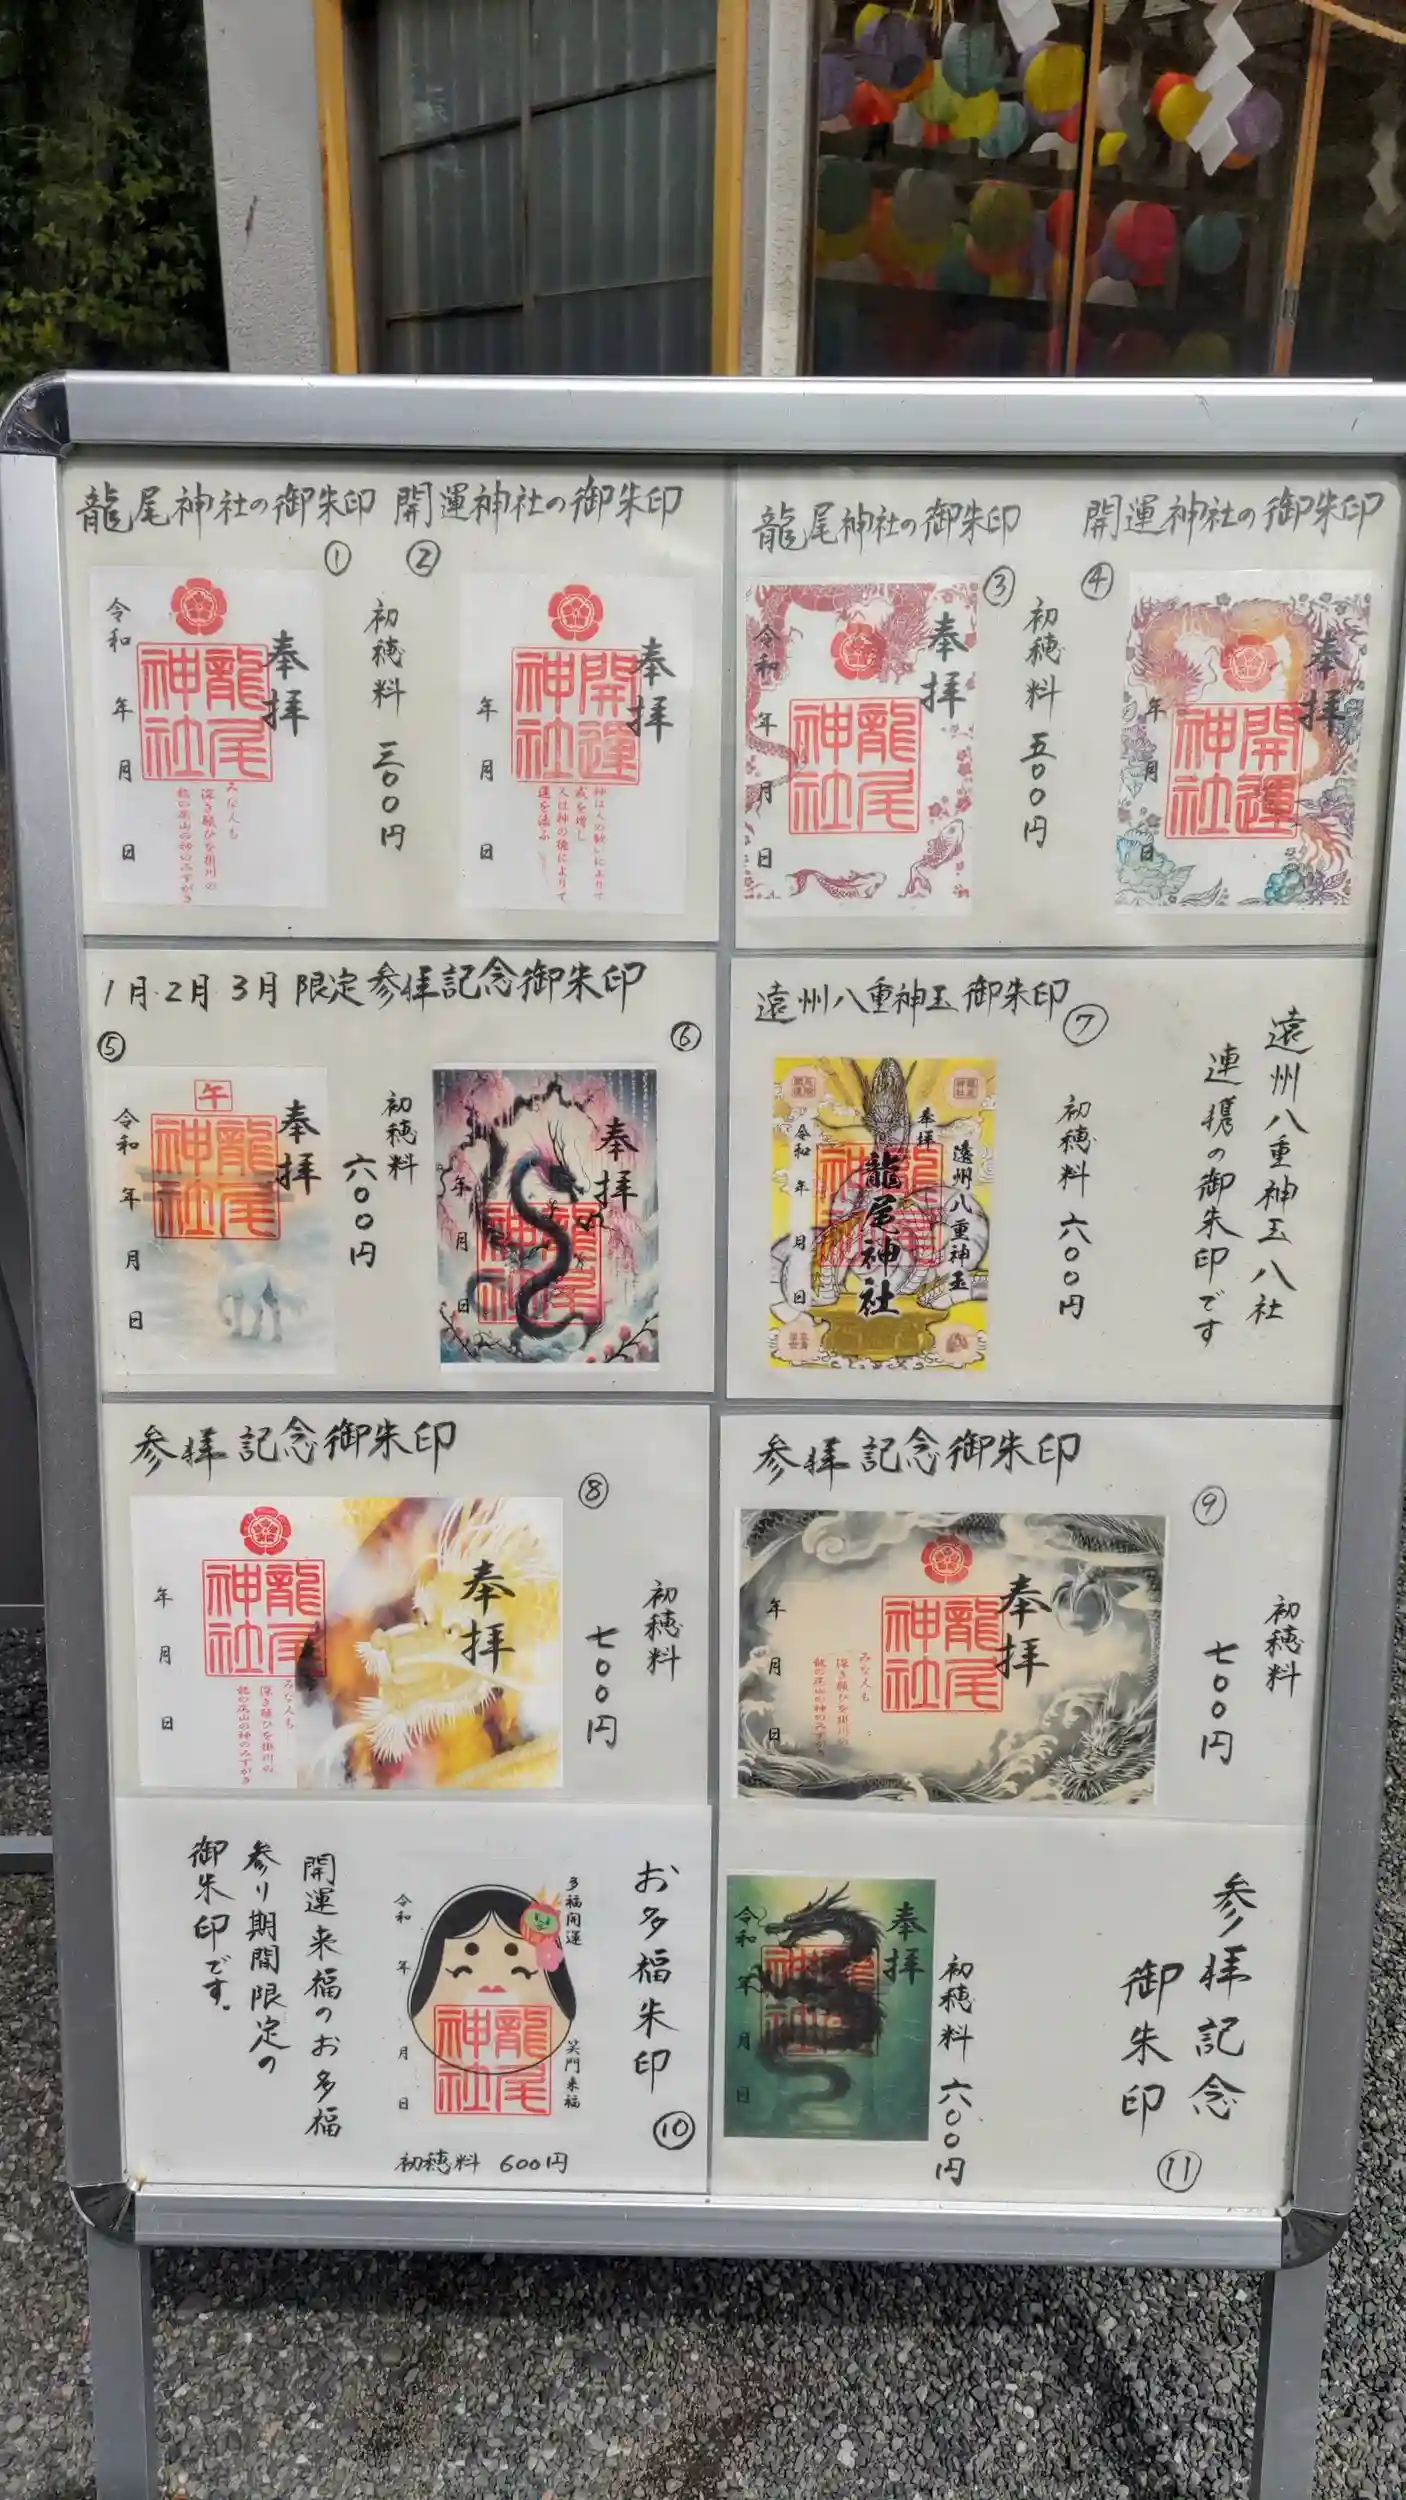 龍尾神社の御朱印 開運神社の御朱印
① ②
奉拝
龍尾神社
令和 年 月 日
みな人も
深き願ひを掛川の
龍の尾山の神のみずがき
初穂料 三〇〇円
奉拝
開運神社
年 月 日
神は人の敬いによりて
威を増し
人は神の徳によりて
運を添ふ
龍尾神社の御朱印 開運神社の御朱印
③ ④
奉拝
龍尾神社
令和 年 月 日
初穂料 五〇〇円
奉拝
開運神社
年 月 日
1月.2月.3月 限定参拝記念御朱印
⑤ ⑥
午
奉拝
龍尾神社
令和 年 月 日
初穂料
六〇〇円
奉拝
龍尾神社
年 月 日
遠州八重神玉御朱印
⑦
奉拝
遠州八重神玉
龍尾神社
龍尾神社
令和 年 月 日
初穂料 六〇〇円
遠州八重神玉八社
連携の御朱印です
参拝記念御朱印
⑧
奉拝
龍尾神社
年 月 日
みな人も
深き願ひを掛川の
龍の尾山の神のみずがき
初穂料
七〇〇円
参拝記念御朱印
⑨
奉拝
龍尾神社
年 月 日
みな人も
深き願ひを掛川の
龍の尾山の神のみずがき
初穂料
七〇〇円
お多福朱印
⑩
多福開運
笑門来福
龍尾神社
令和 年 月 日
初穂料 600円
開運来福のお多福
参り期間限定の
御朱印です。
参拝記念
御朱印
⑪
奉拝
龍尾神社
令和 年 月 日
初穂料 六〇〇円